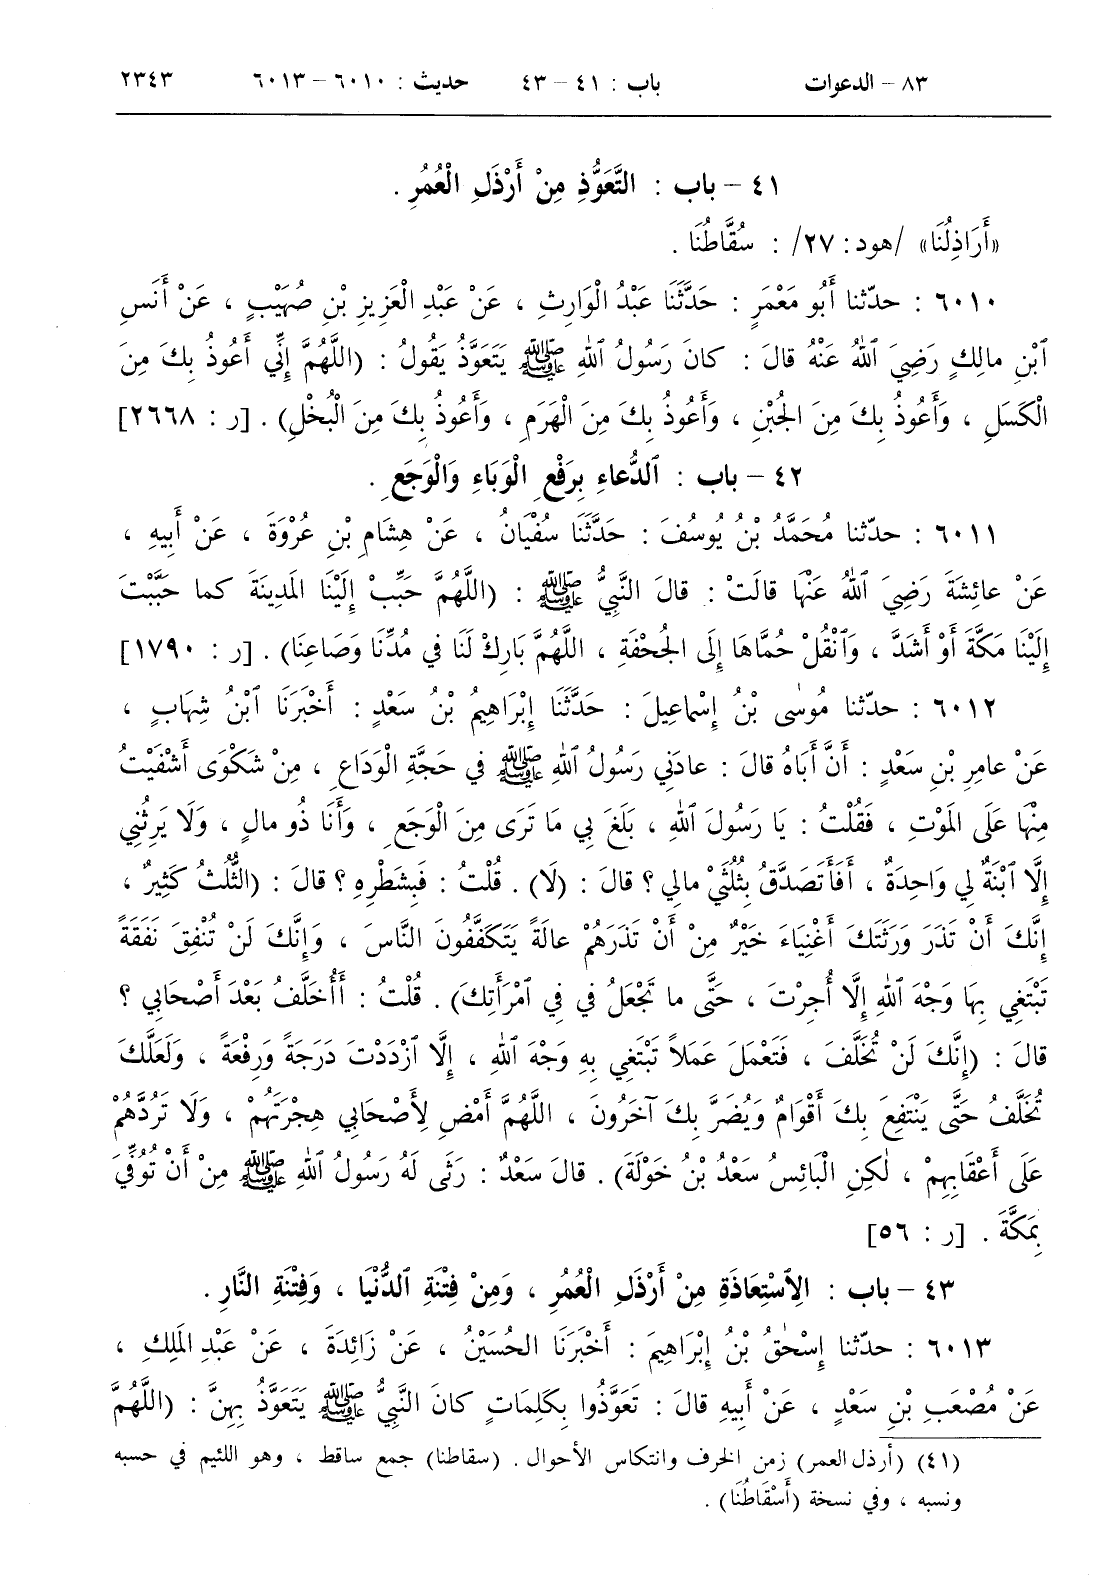 ٨٣ – الدعوات باب : ٤١ – ٤٣ حديث : ٦٠١٠ – ٦٠١٣ ٢٣٤٣
٤١ – باب : التَّعَوُّذِ مِنْ أَرْذَلِ الْعُمُرِ .
«أَرَاذِلُنَا» /هود: ٢٧/ : سُقَّاطُنَا .
٦٠١٠ : حدّثنا أَبُو مَعْمَرٍ : حَدَّثَنَا عَبْدُ الْوَارِثِ ، عَنْ عَبْدِ الْعَزِيزِ بْنِ صُهَيْبٍ ، عَنْ أَنَسِ
ٱبْنِ مالِكٍ رَضِيَ ٱللهُ عَنْهُ قالَ : كانَ رَسُولُ ٱللهِ ﷺ يَتَعَوَّذُ يَقُولُ : (اللَّهُمَّ إِنِّي أَعُوذُ بِكَ مِنَ
الْكَسَلِ ، وَأَعُوذُ بِكَ مِنَ الجُبْنِ ، وَأَعُوذُ بِكَ مِنَ الْهَرَمِ ، وَأَعُوذُ بِكَ مِنَ الْبُخْلِ) . [ر : ٢٦٦٨]
٤٢ – باب : ٱلدُّعاءِ بِرَفْعِ الْوَبَاءِ وَالْوَجَعِ .
٦٠١١ : حدّثنا مُحَمَّدُ بْنُ يُوسُفَ : حَدَّثَنَا سُفْيَانُ ، عَنْ هِشَامِ بْنِ عُرْوَةَ ، عَنْ أَبِيهِ ،
عَنْ عائِشَةَ رَضِيَ ٱللهُ عَنْهَا قالَتْ : قالَ النَّبِيُّ ﷺ : (اللَّهُمَّ حَبِّبْ إِلَيْنَا المَدِينَةَ كما حَبَّبْتَ
إِلَيْنَا مَكَّةَ أَوْ أَشَدَّ ، وَٱنْقُلْ حُمَّاهَا إِلَى الجُحْفَةِ ، اللَّهُمَّ بَارِكْ لَنَا في مُدِّنَا وَصَاعِنَا) . [ر : ١٧٩٠]
٦٠١٢ : حدّثنا مُوسٰى بْنُ إِسْماعِيلَ : حَدَّثَنَا إِبْرَاهِيمُ بْنُ سَعْدٍ : أَخْبَرَنَا ٱبْنُ شِهَابٍ ،
عَنْ عامِرِ بْنِ سَعْدٍ : أَنَّ أَبَاهُ قالَ : عادَنِي رَسُولُ ٱللهِ ﷺ في حَجَّةِ الْوَدَاعِ ، مِنْ شَكْوَى أَشْفَيْتُ
مِنْهَا عَلَى المَوْتِ ، فَقُلْتُ : يَا رَسُولَ ٱللهِ ، بَلَغَ بِي مَا تَرَى مِنَ الْوَجَعِ ، وَأَنَا ذُو مالٍ ، وَلَا يَرِثُنِي
إِلَّا ٱبْنَةٌ لِي وَاحِدَةٌ ، أَفَأَتَصَدَّقُ بِثُلُثَيْ مالِي ؟ قالَ : (لَا) . قُلْتُ : فَبِشَطْرِهِ ؟ قالَ : (الثُّلُثُ كَثِيرٌ ،
إِنَّكَ أَنْ تَذَرَ وَرَثَتَكَ أَغْنِيَاءَ خَيْرٌ مِنْ أَنْ تَذَرَهُمْ عالَةً يَتَكَفَّفُونَ النَّاسَ ، وَإِنَّكَ لَنْ تُنْفِقَ نَفَقَةً
تَبْتَغِي بِهَا وَجْهَ ٱللهِ إِلَّا أُجِرْتَ ، حَتَّى ما تَجْعَلُ في فِي ٱمْرَأَتِكَ) . قُلْتُ : أَأُخَلَّفُ بَعْدَ أَصْحَابِي ؟
قالَ : (إِنَّكَ لَنْ تُخَلَّفَ ، فَتَعْمَلَ عَمَلاً تَبْتَغِي بِهِ وَجْهَ ٱللهِ ، إِلَّا ٱزْدَدْتَ دَرَجَةً وَرِفْعَةً ، وَلَعَلَّكَ
تُخَلَّفُ حَتَّى يَنْتَفِعَ بِكَ أَقْوَامٌ وَيُضَرَّ بِكَ آخَرُونَ ، اللَّهُمَّ أَمْضِ لِأَصْحَابِي هِجْرَتَهُمْ ، وَلَا تَرُدَّهُمْ
عَلَى أَعْقَابِهِمْ ، لٰكِنِ الْبَائِسُ سَعْدُ بْنُ خَوْلَةَ) . قالَ سَعْدٌ : رَثَى لَهُ رَسُولُ ٱللهِ ﷺ مِنْ أَنْ تُوُفِّيَ
بِمَكَّةَ . [ر : ٥٦]
٤٣ – باب : الِٱسْتِعَاذَةِ مِنْ أَرْذَلِ الْعُمُرِ ، وَمِنْ فِتْنَةِ ٱلدُّنْيَا ، وَفِتْنَةِ النَّارِ .
٦٠١٣ : حدّثنا إِسْحٰقُ بْنُ إِبْرَاهِيمَ : أَخْبَرَنَا الحُسَيْنُ ، عَنْ زَائِدَةَ ، عَنْ عَبْدِ المَلِكِ ،
عَنْ مُصْعَبِ بْنِ سَعْدٍ ، عَنْ أَبِيهِ قالَ : تَعَوَّذُوا بِكَلِمَاتٍ كانَ النَّبِيُّ ﷺ يَتَعَوَّذُ بِهِنَّ : (اللَّهُمَّ
(٤١) (أرذل العمر) زمن الخرف وانتكاس الأحوال . (سقاطنا) جمع ساقط ، وهو اللئيم في حسبه
ونسبه ، وفي نسخة (أَسْقَاطُنَا) .